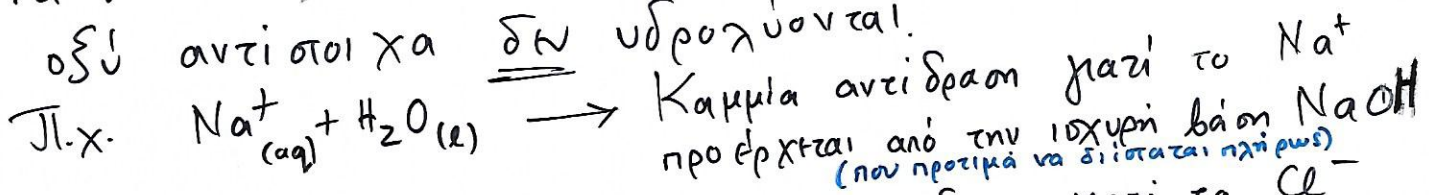 οξύ αντίστοιχα δεν υδρολύονται!
Π.χ. Na⁺(aq) + H₂O(l) → Καμμία αντίδραση γιατί το Na⁺
προέρχεται από την ισχυρή βάση NaOH
(που προτιμά να διίσταται πλήρως)
γιατί το Cl⁻